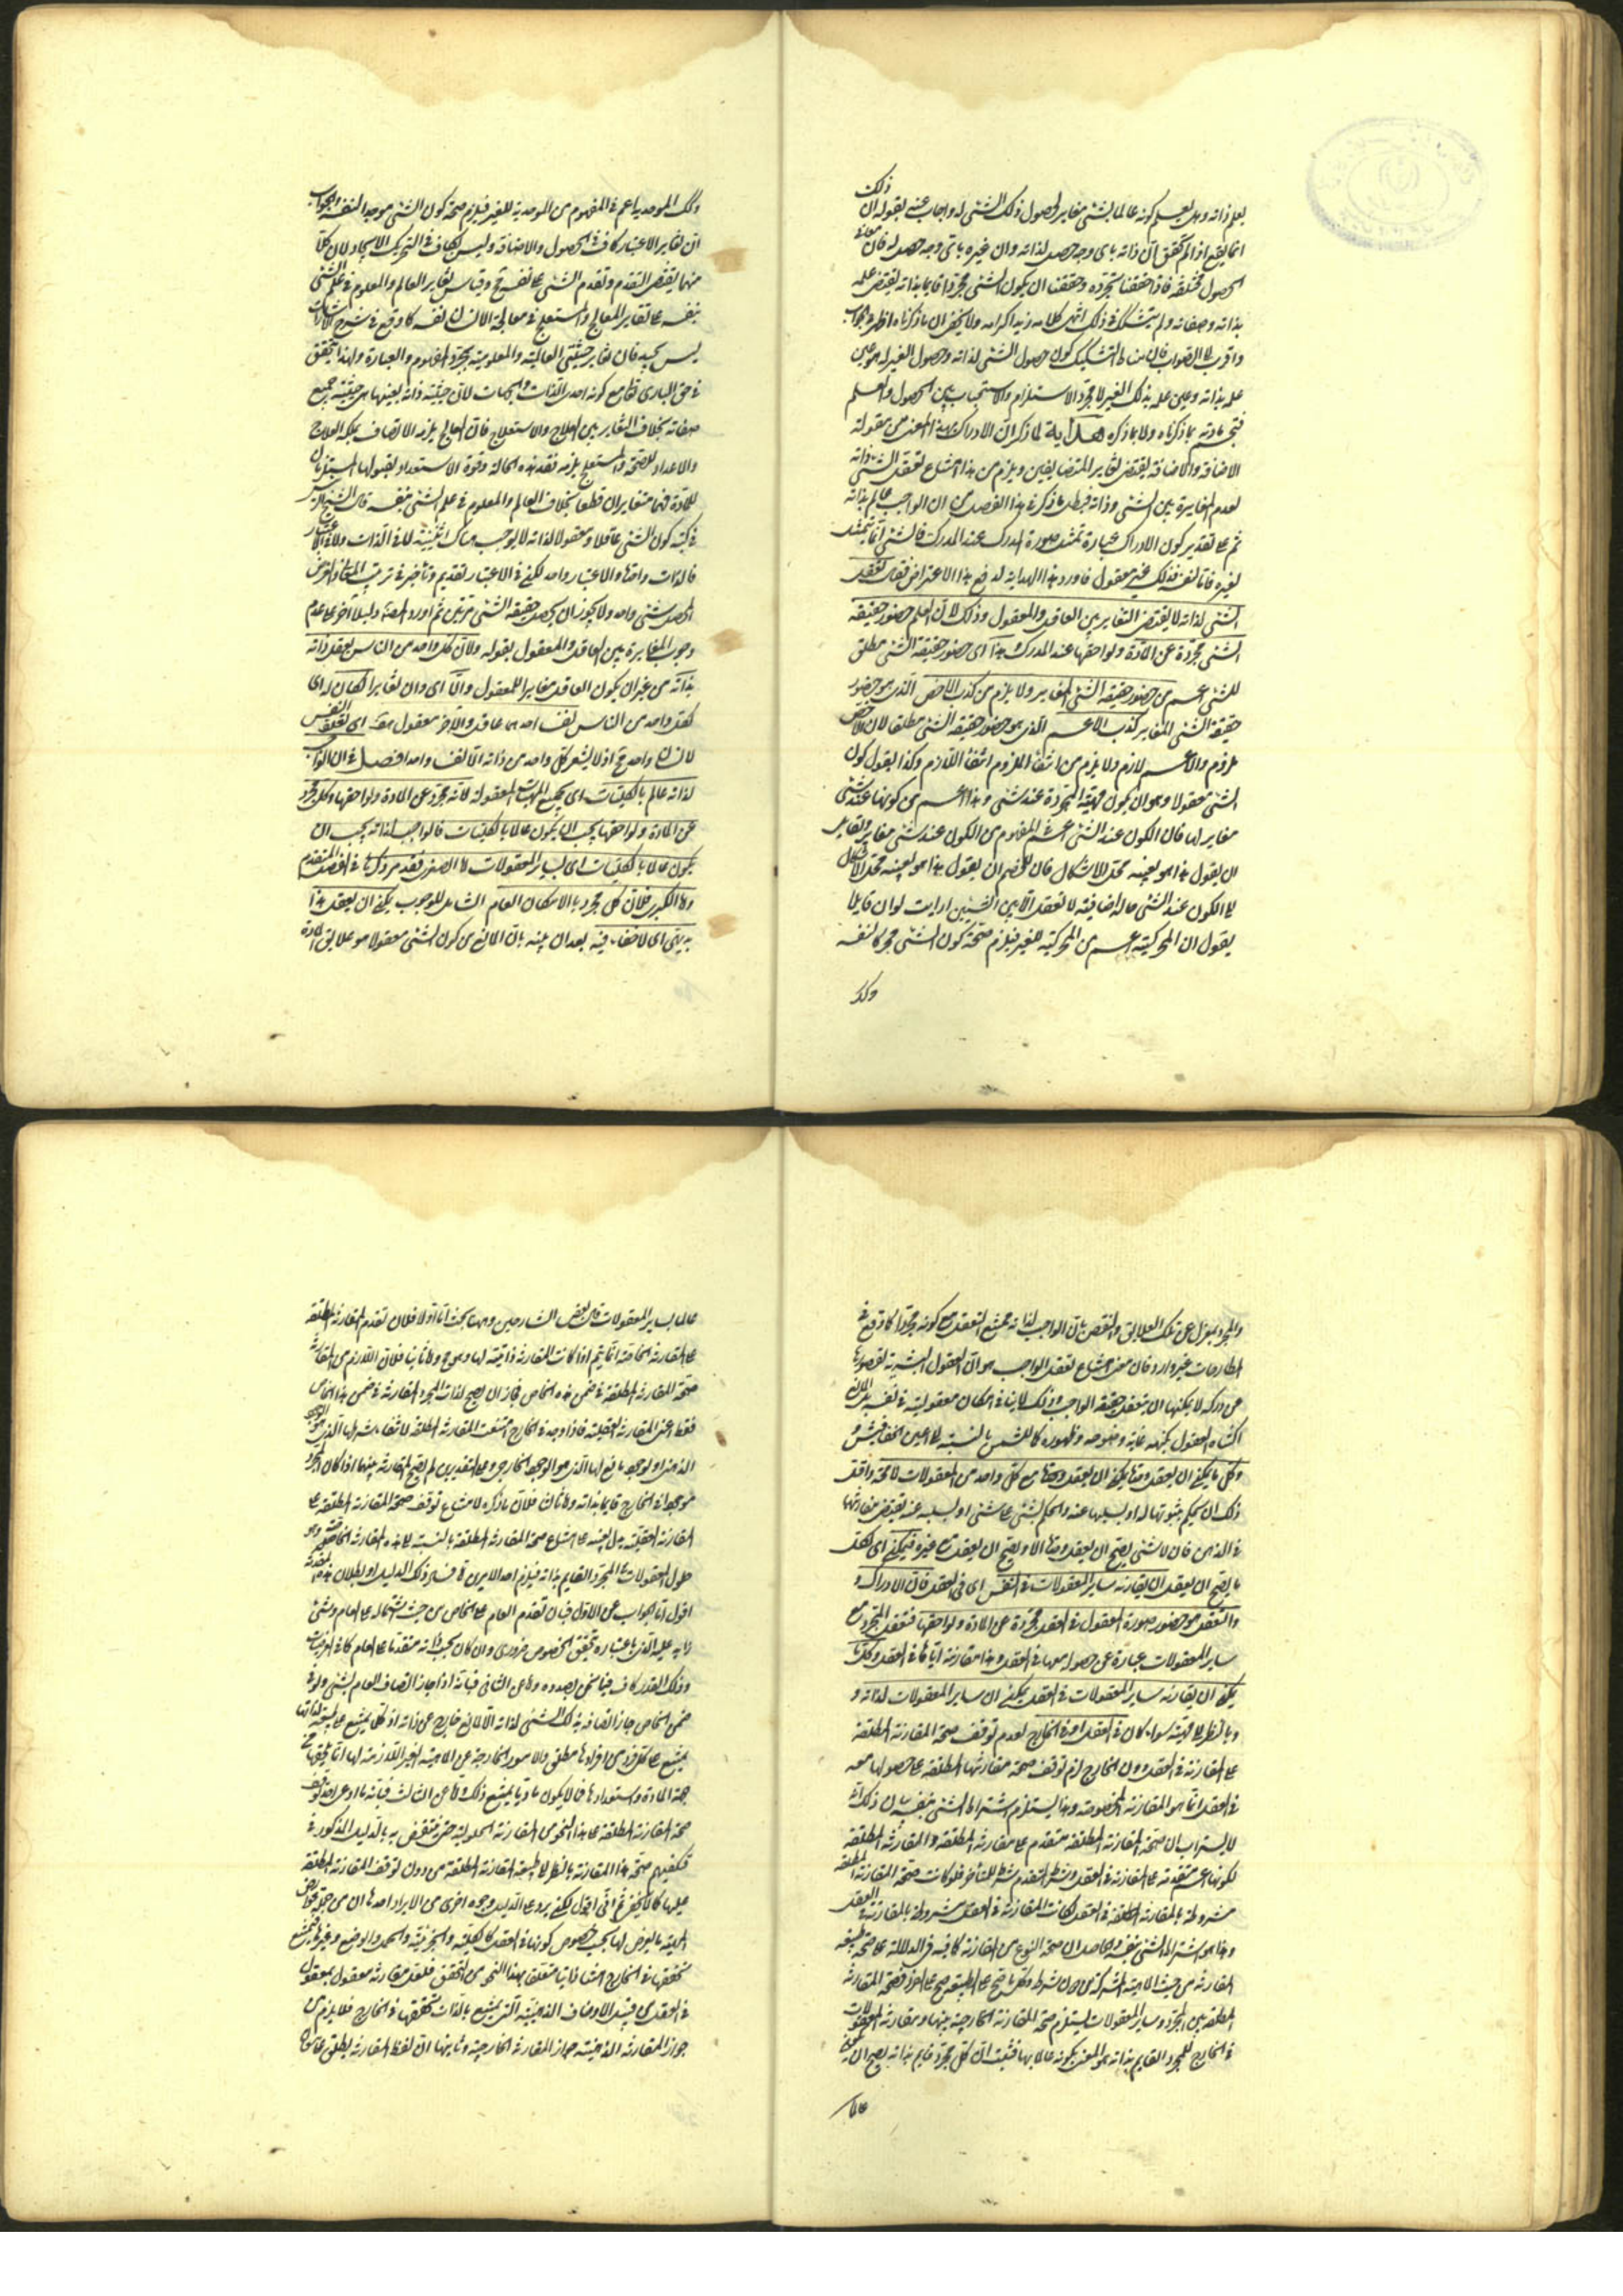 ذلك
يعلم ذاته وهل يعلم كونه عالما بشئ مغاير لحصول ذلك الشئ له واجاب عنه بقوله ان
انما يقع اذا لم يحقق ان ذاته باى وجه حصل لذاته وان غيره باى وجه حصل له فان
الحصول مختلفة فاذا حققنا تجرده وحققنا ان يكون الشئ مجردا قايما بذاته يقتضى علمه
بذاته وصفاته ولم يتشكك فى ذلك انتهى كلامه زيد اكرامه ولا يخفى ان ما ذكرناه اظهر
واقرب الى الصواب فان مناط التشكيك كون حصول الشئ لذاته وحصول الغير له هو عين
علمه بذاته وعين علمه بذلك الغير لا مجرد الاستلزام والاستصحاب بين الحصول والعلم
بما ذكرناه ولا بما ذكره هداية لما ذكر ان الادراك بهذا المعنى من مقولة
الاضافة والاضافة يقتضى تغاير المتضايفين ويلزم من هذا امتناع تعقل الشئ ذاته
لعدم المغايرة بين الشئ وذاته فبطل ما ذكر فى هذا الفصل من ان الواجب عالم بذاته
ثم على تقدير كون الادراك عبارة تمثل صورة المدرك عند المدرك فالشئ انما يتمثل
لغيره فاما لنفسه فذلك غير معقول فاورد هذا الهداية لدفع هذا الاعتراض فقال تعقل
الشئ لذاته لا يقتضى التغاير بين العاقل والمعقول وذلك لان العلم حضور حقيقة
الشئ مجردة عن المادة ولواحقها عند المدرك وهذا اى حضور حقيقة الشئ مطلق
للشئ اعم من حضور حقيقة الشئ المغاير ولا يلزم من كذب الاخص الذى هو حضور
حقيقة الشئ المغاير كذب الاعم الذى هو حضور حقيقة الشئ مطلقا لان الاخص
ملزوم والاعم لازم ولا يلزم من انتفاء الملزوم انتفاء اللازم وكذا يقول كون
الشئ معقولا وهو ان يكون ماهيته المجردة عند شئ وهذا اعم من كونها عند شئ
مغاير لها فان الكون عند الشئ اعم فى المفهوم من الكون عند شئ مغاير ولقايل
ان يقول هذا هو بعينه محل الاشكال فان للخصم ان يقول هذا هو بعينه محل الاشكال
اذ الكون عند الشئ حالة اضافية لا تعقل الا بين الشيئين ارايت لو ان قايلا
يقول ان المحركية اعم من المحركية للغير فيلزم صحة كون الشئ محركا لنفسه
وكذا
وكذا الموجدية اعم فى المفهوم من الموجدية للغير فيلزم صحة كون الشئ موجدا لنفسه والجواب
ان تغاير الاعتبار كاف فى الحصول والاضافة وليس بكاف فى التحريك والايجاد لان كلا
منهما يقتضى التقدم وتقدم الشئ على نفسه مح وقياس تغاير العالم والمعلوم فى علم الشئ
بنفسه على تغاير المعالج والمستعلج فى معالجة الانسان نفسه كما وقع فى شرح الاشارات
ليس بجيد فان تغاير حيثيتى العالمية والمعلومية بمجرد المفهوم والعبارة ولهذا تحقق
فى حق البارى تعالى مع كونه احدى الذات والجهات لان حيثية ذاته بعينها هى حيثية جميع
صفاته بخلاف التغاير بين العلاج والاستعلاج فان العالج يلزمه الاتصاف بملكة العلاج
والاعداد للصحة والمستعلج يلزمه فقد هذه الحالة وقوة الاستعداد لقبولها المستلزمان
للمادة فهما متغايران قطعا بخلاف العالم والمعلوم فى علم الشئ بنفسه قال الشيخ الرئيس
فى كتبه كون الشئ عاقلا ومعقولا لذاته لا يوجب هناك اثنينية لا فى الذات ولا فى الاعتبار
فالذات واحدة والاعتبار واحد لكن فى الاعتبار تقديم وتاخير فى ترتيب المعانى والغرض
المحصل شئ واحد ولا يجوز ان يحصل حقيقة الشئ مرتين ثم اورد المصنف دليلا آخر على عدم
وجوب المغايرة بين العاقل والمعقول بقوله ولان كل واحد من الناس يعقل ذاته
بذاته من غير ان يكون العاقل مغايرا للمعقول والا اى وان تغايرا لكان له اى
لكل واحد من الناس نفسان احدهما عاقل والآخر معقول هف اى تعلق النفس
لانسان واحد مح اذ لا يشعر كل واحد من ذاته الا نفسا واحدا فصل فى ان الواجب
لذاته عالم بالكليات اى بجميع الماهيات المعقولة لانه مجرد عن المادة ولواحقها وكل مجرد
عن المادة ولواحقها يجب ان يكون عالما بالكليات فالواجب لذاته يجب ان
يكون عالما بالكليات اى بساير المعقولات اما الصغرى فقد مر ذكرها فى الفصل المتقدم
واما الكبرى فلان كل مجرد بالامكان العام الشامل للوجوب يمكن ان يعقل وهذا
بديهى اى لا خفاء فيه بعد ان يتنبه بان المانع من كون الشئ معقولا هو علايق المادة
والمجرد بمعزل عن تلك العلايق والنقض بان الواجب لذاته ممتنع التعقل مع كونه مجردا كما وقع فى
المطارحات غير وارد فان معنى امتناع تعقل الواجب هو ان العقول البشرية لقصورها
عن دركه لا يمكنها ان يتعقل حقيقة الواجب وذلك لا ينافى امكان معقوليته فى نفسه بل المانع
اكتناه العقول بكنهه غاية وضوحه وظهوره كما للشمس بالنسبة الى اعين الخفافيش و
وكل ما يمكن ان يعقل وحده يمكن ان يعقل مع كل واحد من المعقولات لا محة واقل
ذلك ان يحكم بثبوتها له او بسلبها عنه والحكم بشئ على شئ او بسلبه عنه يقتضى مقارنتهما
فى الذهن فان كل شئ يصح ان يعقل وحده الا ويصح ان يعقل مع غيره فيمكن اى لكل
ما يصح ان يعقل ان يقارنه ساير المعقولات فى النفس اى فى العقل فان الادراك و
والتعقل هو حضور صورة المعقول فى العقل مجردة عن المادة ولواحقها فتعقل المجرد مع
ساير المعقولات عبارة عن حصوله معها فى العقل وهذا مقارنة اياها فى العقل وكل ما
يمكن ان تقارنه ساير المعقولات فى العقل يمكن ان ساير المعقولات لذاته و
وبالنظر الى ماهيته سواء كان فى العقل او فى الخارج لعدم توقف صحة المقارنة المطلقة
على المقارنة فى العقل دون الخارج اذ لو توقف صحة مقارنتها المطلقة على حصولها معه
فى العقل انما هو المقارنة المخصوصة وهذا يستلزم اشتراط الشئ بنفسه بيان ذلك انه
لا يستراب ان صحة المقارنة المطلقة متقدم على مقارنته المطلقة والمقارنة المطلقة
لكونها اعم متقدمة على المقارنة فى العقل وشرط المتقدم شرط للمتأخر فلو كانت صحة المقارنة المطلقة
مشروطة بالمقارنة المطلقة فى العقل لكانت المقارنة فى العقل مشروطة بالمقارنة فى العقل
وهذا هو اشتراط الشئ بنفسه والحاصل ان صحة النوع من المقارنة كافية فى الدلالة على صحة طبيعة
المقارنة من حيث الماهية المشتركة من دون شرط وكل ما صح على الطبيعة صح على الفرد فصحة المقارنة
المطلقة بين المجرد وساير المعقولات يستلزم صحة المقارنة الخارجية بينها ومقارنة المعقولات
فى الخارج للمجرد القايم بذاته هو المعنى بكونه عالما بها فثبت ان كل مجرد قايم بذاته يصح ان يكون
عالما
عالما بساير المعقولات قال بعض الشارحين وههنا بحث اما اولا فلان تقدم المقارنة المطلقة
على المقارنة الخاصة انما يتم اذا كانت المقارنة ذاتية لها وهو مح واما ثانيا فلان اللازم من المقارنة
صحة المقارنة المطلقة فى ضمن هذه الخاص فجاز ان يصح لذات المجرد المقارنة فى ضمن هذا الخاص
فقط اعنى المقارنة العقلية فاذا وجد فى الخارج امتنعت المقارنة المطلقة لانتفاء شرطها الذى هو الوجود
الذهنى او لوجود مانع لها الذى هو الوجود الخارجى وعلى التقديرين لم يصح المقارنة بينهما اذا كان المجرد
موجودا فى الخارج قايما بذاته واما ثالثا فلان ما ذكره لامتناع توقف صحة المقارنة المطلقة على
المقارنة العقلية يدل بعينه على امتناع صحة المقارنة المطلقة بالنسبة الى هذه المقارنة الخاصة وهو
حلول المعقولات فى المجرد القايم بذاته فيلزم احد الامرين اما فساد ذلك الدليل او بطلان هذه المقدمة
اقول اما الجواب عن الاول فبان تقدم العام على الخاص من حيث اشتماله على العام وشئ
زايد عليه الذى باعتباره تحقق الخصوص ضرورى وان كان بحسب ذاته متقدما على العام كما فى العرضيات
وذلك القدر كاف فيما نحن بصدده واما عن الثانى فبانه اذا جاز اتصاف العام بشئ ولو فى
ضمن الخاص جاز اتصافه بذلك الشئ لذاته الا لمانع خارج عن ذاته اذ كل ما يمتنع على طبيعة لذاتها
يمتنع على كل فرد من افرادها مطلقا والامور الخارجة عن الماهية الغير اللازمة لها انما تلحقها من
جهة المادة واستعدادها فما لا يكون ماديا يمتنع ذلك واما عن الثالث فبانه ما ادعى احد توقف
صحة المقارنة المطلقة على هذا النحو من المقارنة الحلولية حتى ينتقض به بالدليل المذكور فى
فيكفيهم صحة هذا المقارنة بالنظر الى طبيعة المقارنة المطلقة من دون توقف المقارنة المطلقة
عليها كما لا يخفى ثم اقول لكن يرد على الدليل وجوه اخرى من الايراد احدها ان من جملة عوارض
الماهية ما يعرض لها بحسب خصوص كونها فى العقل كالكلية والجزئية والحمل والوضع وغيرها يمتنع
تحققها فى الخارج
فى العقل من قبيل الاوصاف الذهنية التى يمتنع بالذات تحققها فى الخارج فلا يلزم من
جواز المقارنة الذهنية جواز المقارنة الخارجية وثانيها ان لفظ المقارنة يطلق على